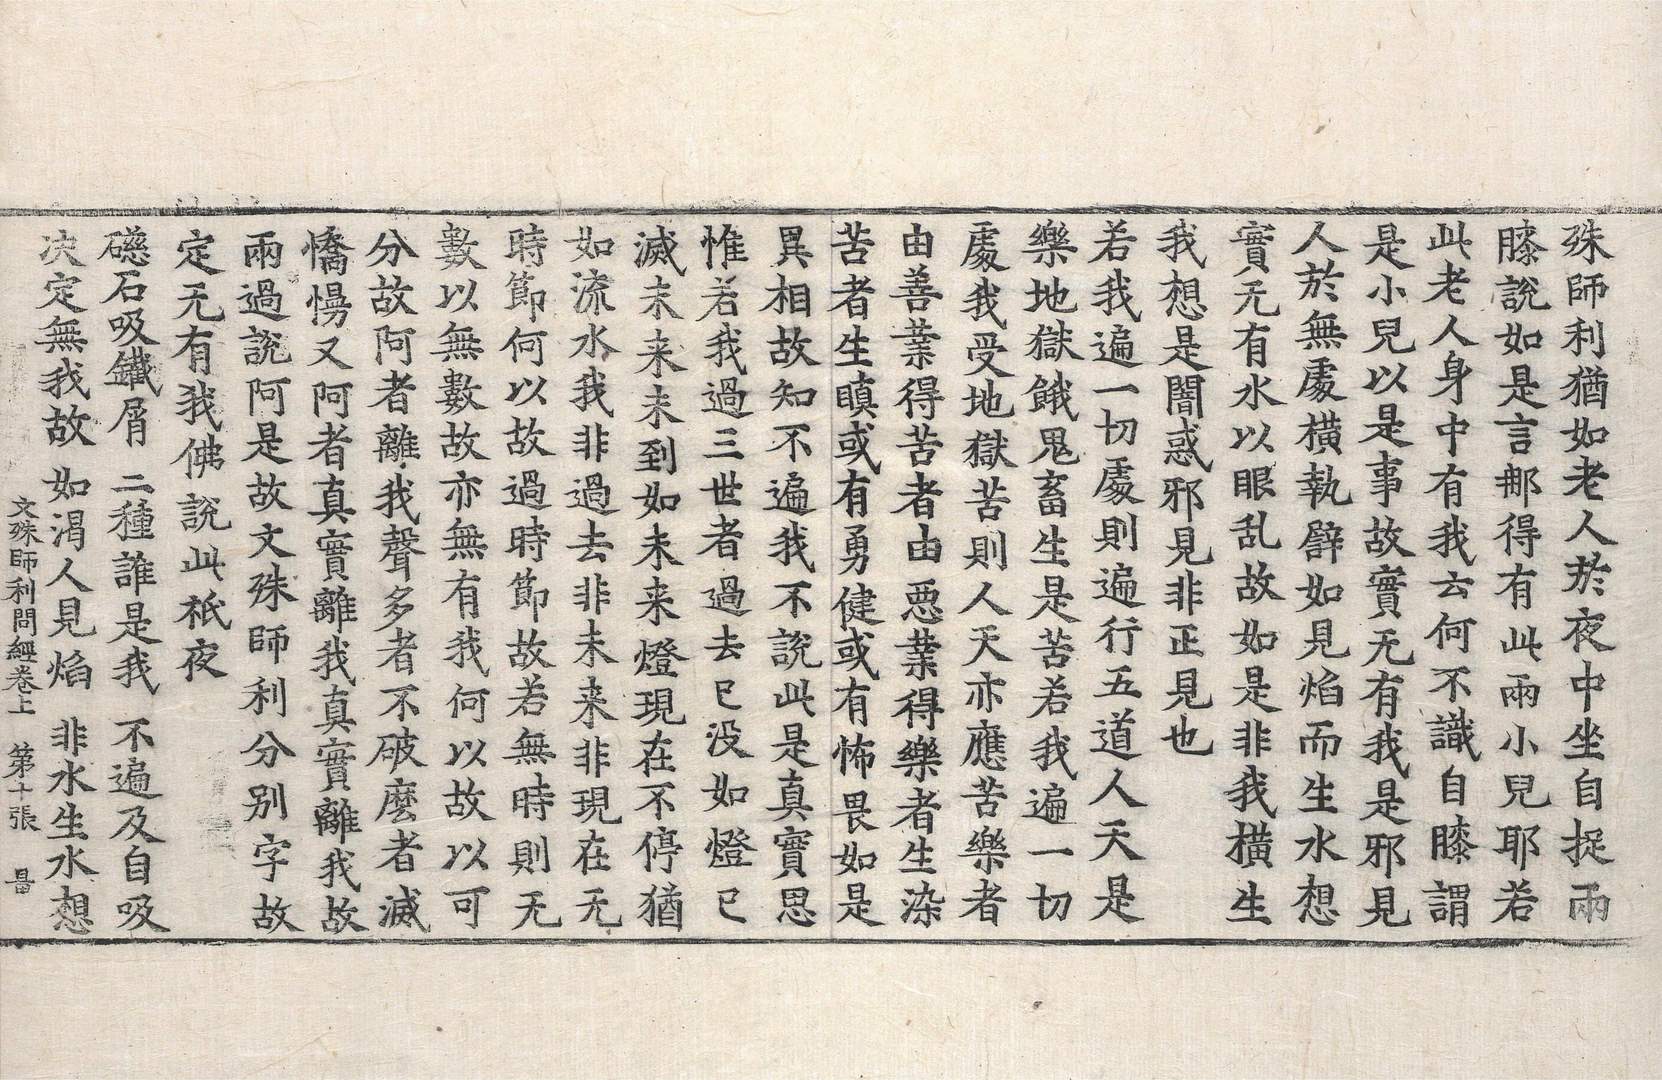 殊師利猶如老人於夜中坐自捉兩
膝說如是言那得有此兩小兒耶若
此老人身中有我云何不識自膝謂
是小兒以是事故實无有我是邪見
人於無處橫執譬如見焰而生水想
實无有水以眼乱故如是非我橫生
我想是闇惑邪見非正見也
若我遍一切處則遍行五道人天是
樂地獄餓鬼畜生是苦若我遍一切
處我受地獄苦則人天亦應苦樂者
由善業得苦者由惡業得樂者生染
苦者生瞋或有勇健或有怖畏如是
異相故知不遍我不說此是真實思
惟若我過三世者過去已没如燈已
滅未来未到如未来燈現在不停猶
如流水我非過去非未来非現在无
時節何以故過時節故若無時則无
數以無數故亦無有我何以故以可
分故阿者離我聲多者不破麼者滅
憍慢又阿者真實離我真實離我故
兩過說阿是故文殊師利分别字故
定无有我佛說此祇夜
磁石吸鐵屑　二種誰是我　不遍及自吸
决定無我故　如渴人見焰　非水生水想
文殊師利問經卷上　第十張